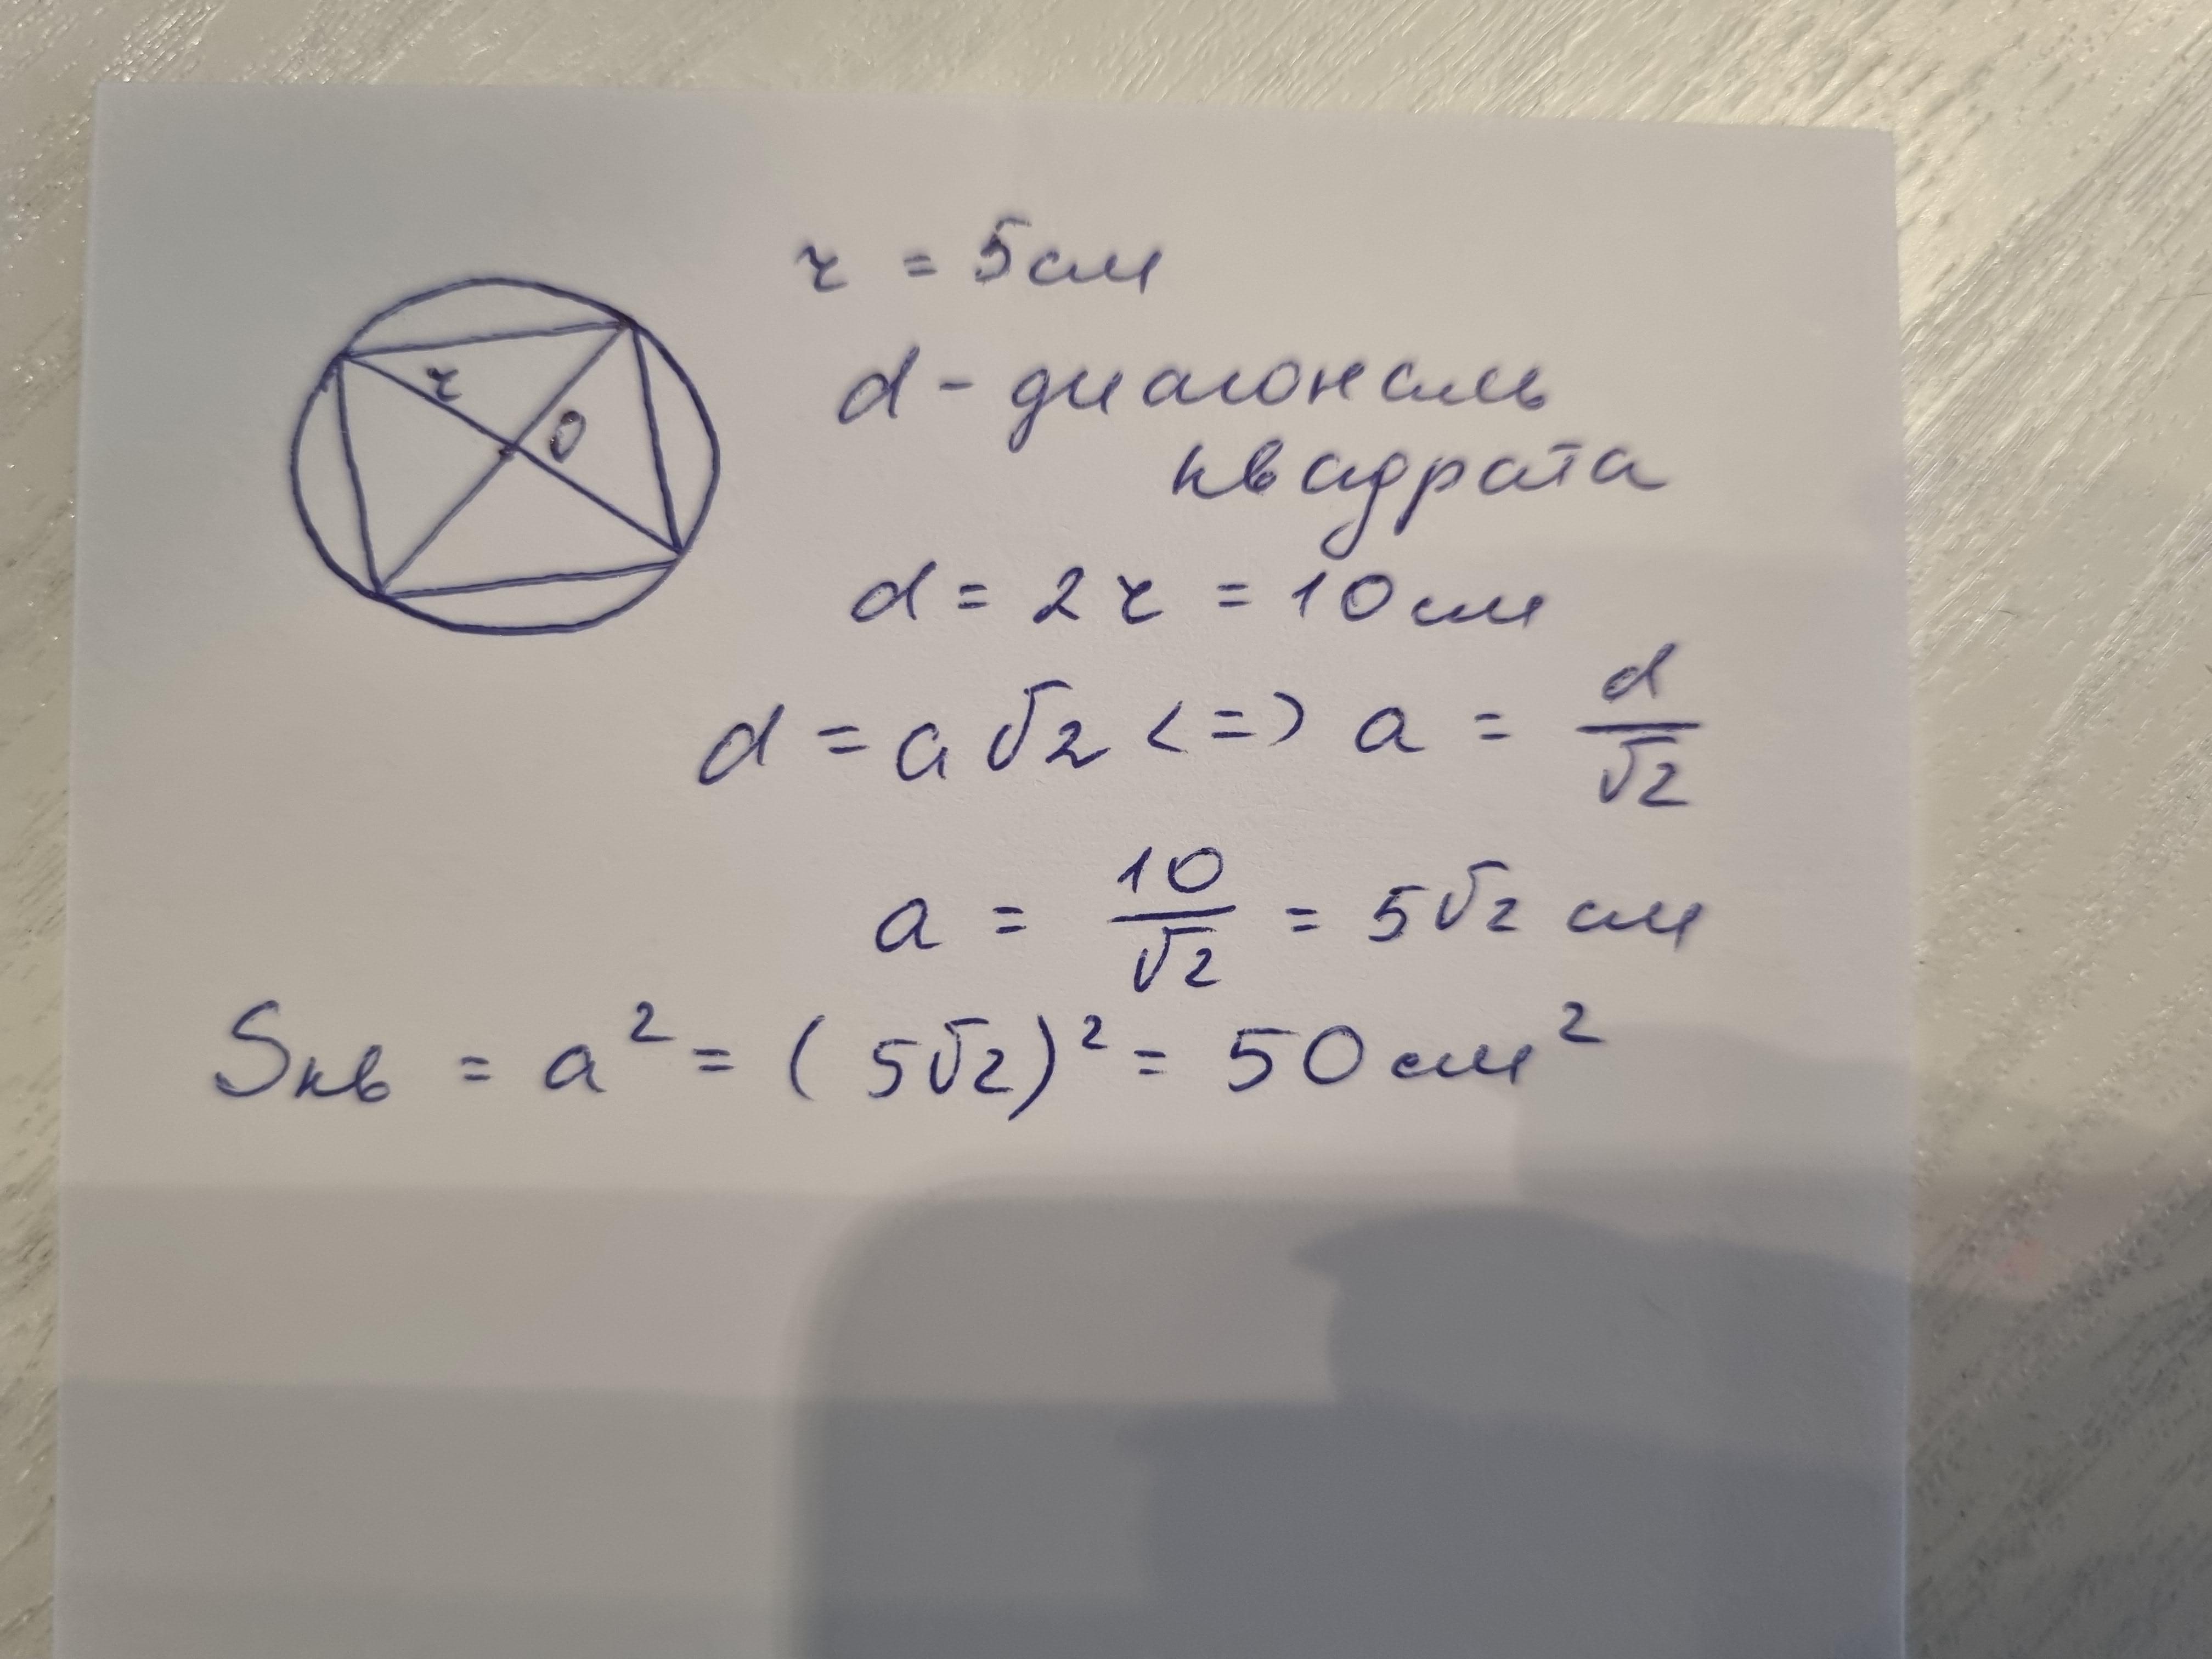 r = 5 см
r
O
d - диагональ
квадрата
d = 2r = 10 см
d = a√2 <=> a = d/√2
a = 10/√2 = 5√2 см
Sкв = a² = (5√2)² = 50 см²